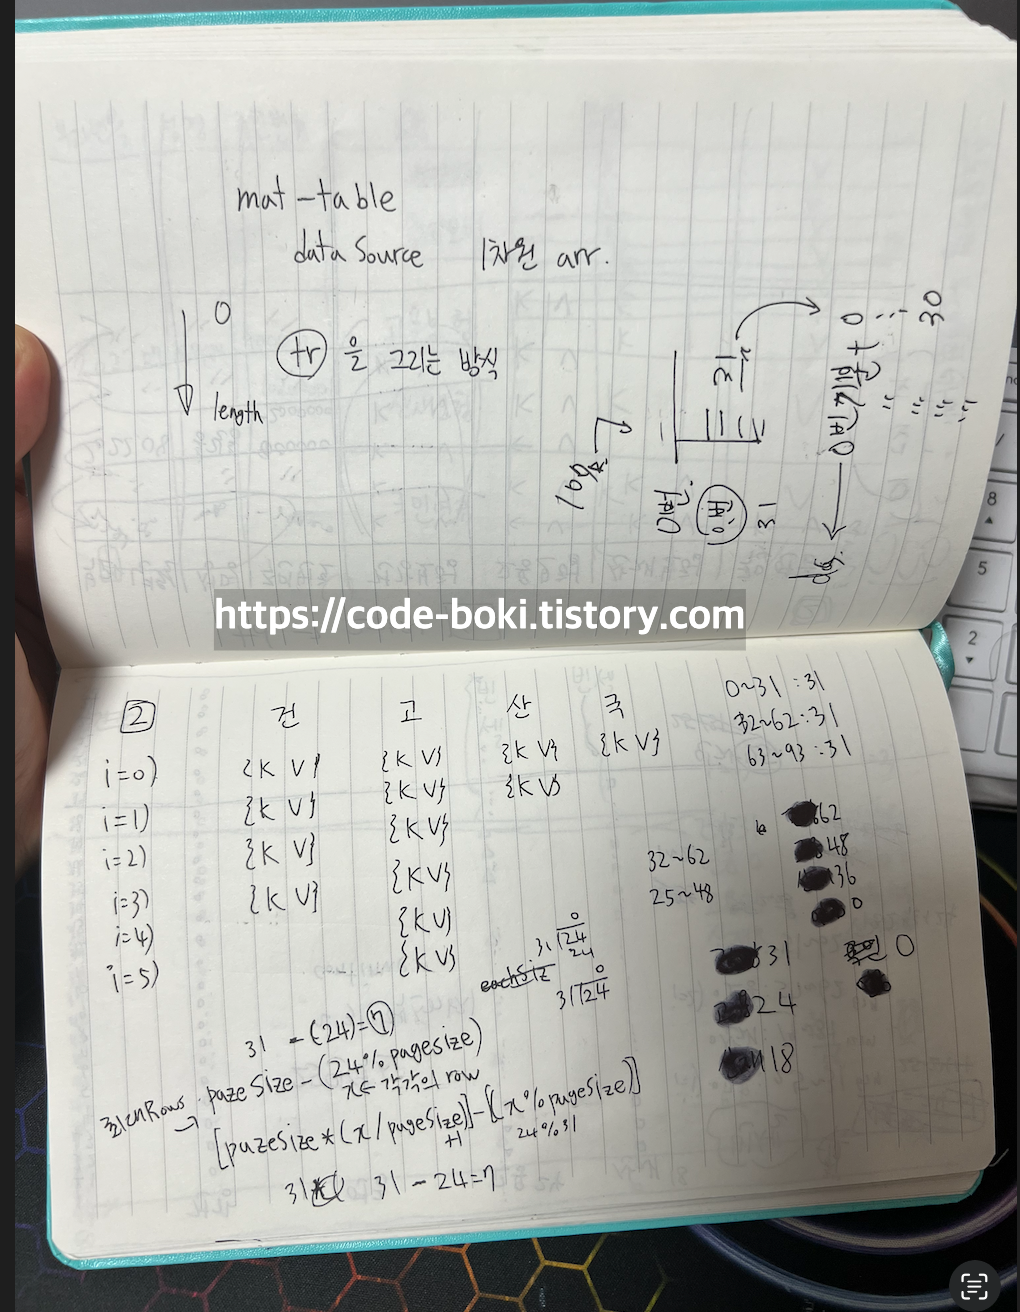 mat-table
data source 1차원 arr.
0
tr 을 그리는 방식
length
31
0
30
31
https://code-boki.tistory.com
2 건 고 산 국
i=0) {K V} {K V} {K V} {K V}
i=1) {K V} {K V} {K V}
i=2) {K V} {K V}
i=3) {K V} {K V}
i=4) {K V}
i=5) {K V}
0~31 : 31
32~62 : 31
63~93 : 31
62
48
36
0
32~62
25~48
0
31 24
24
eachSiz
0
31 24
31
24
18
0
31 - (24) = 7
paze size - (24 % pagesize)
x ← 각각의 row
[pazesize * (x / pagesize)] - [x % pagesize)]
+1
24 % 31
31 31 - 24 = 7